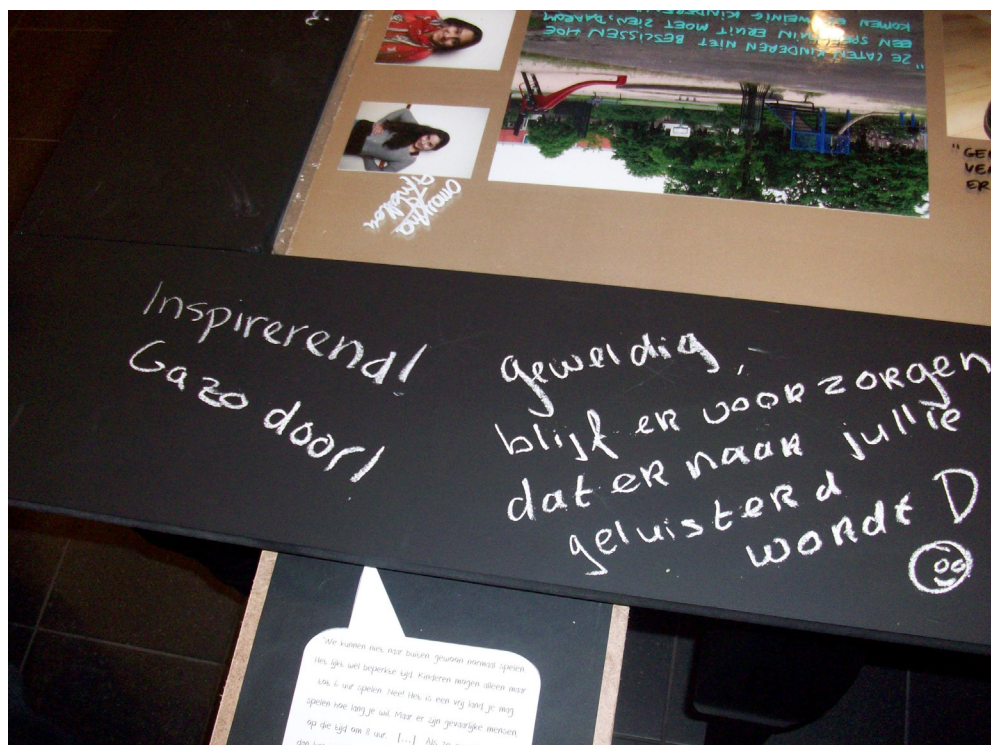 "ZE LATEN KINDEREN NIET BESLISSEN HOE
EEN SPEELTUIN ERUIT MOET ZIEN, DAAROM
KOMEN ER WEINIG KINDEREN
"GE
VE
ER
Inspirerend!
Gazo door!
geweldig,
blijf er voor zorgen
dat er naar jullie
geluisterd
wordt D
"We kunnen niet naar buiten gewoon normaal spelen
Het lijkt wel beperkte tijd. Kinderen mogen alleen maar
tot 6 uur spelen. Nee! Het is een vrij land je mag
spelen hoe lang je wil. Maar er zijn gevaarlijke mensen
op die tijd om 8 uur. [...] Als